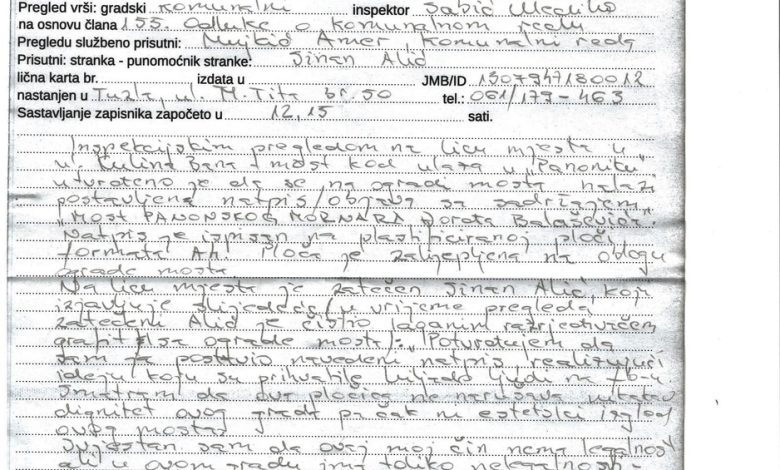 Pregled vrši: gradski komunalni inspektor Sabić
na osnovu člana 155. Odluke o komunalnom redu
Pregledu službeno prisutni: Mujkić Amer, komunalni redar
Prisutni: stranka - punomoćnik stranke: Sinan Alić
lična karta br. izdata u JMB/ID 1307947180012
nastanjen u Tuzla, ul. M. Tita br. 50 tel.: 061/179-463
Sastavljanje zapisnika započeto u 12,15 sati.
Inspekcijskim pregledom na licu mjesta u
ul. Kulina Bana - most kod ulaza u "Panoniku"
utvrđeno je da se na ogradi mosta nalazi
postavljena natpis/objava sa sadržajem
"MOST PANONSKOG MORNARA Đorđa Balaševića".
Natpis je ispisan na plastificiranoj ploči
formata A4. Ploča je zalijepljena na oblogu
ograde mosta
Na licu mjesta je zatečen Sinan Alić, koji
izjavljuje slijedeće (u vrijeme pregleda
zatečeni Alić je čistio laganim razrjeđivačem
grafit sa ograde mosta): "Potvrđujem da
sam ja postavio navedeni natpis, realizujući
ideju koju su prihvatile hiljade ljudi na fb-u.
Smatram da ova pločica ne narušava
dignitet ovog grada pa čak ni estetski izgled
ovog mosta.
Svjestan sam da ovaj moj čin nema legalnost
ali u ovom gradu ima toliko